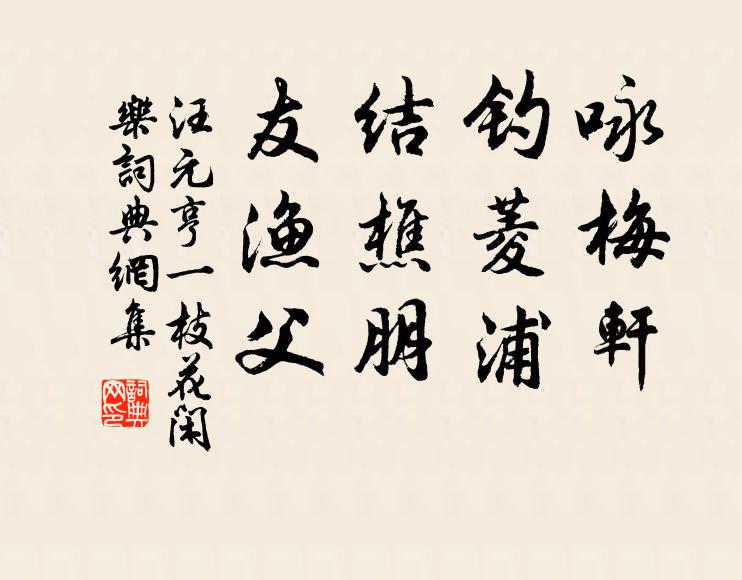 咏梅軒
钓菱浦
结樵朋
友渔父
汪元亨一枝花闲
樂詞典網集
詞典网印